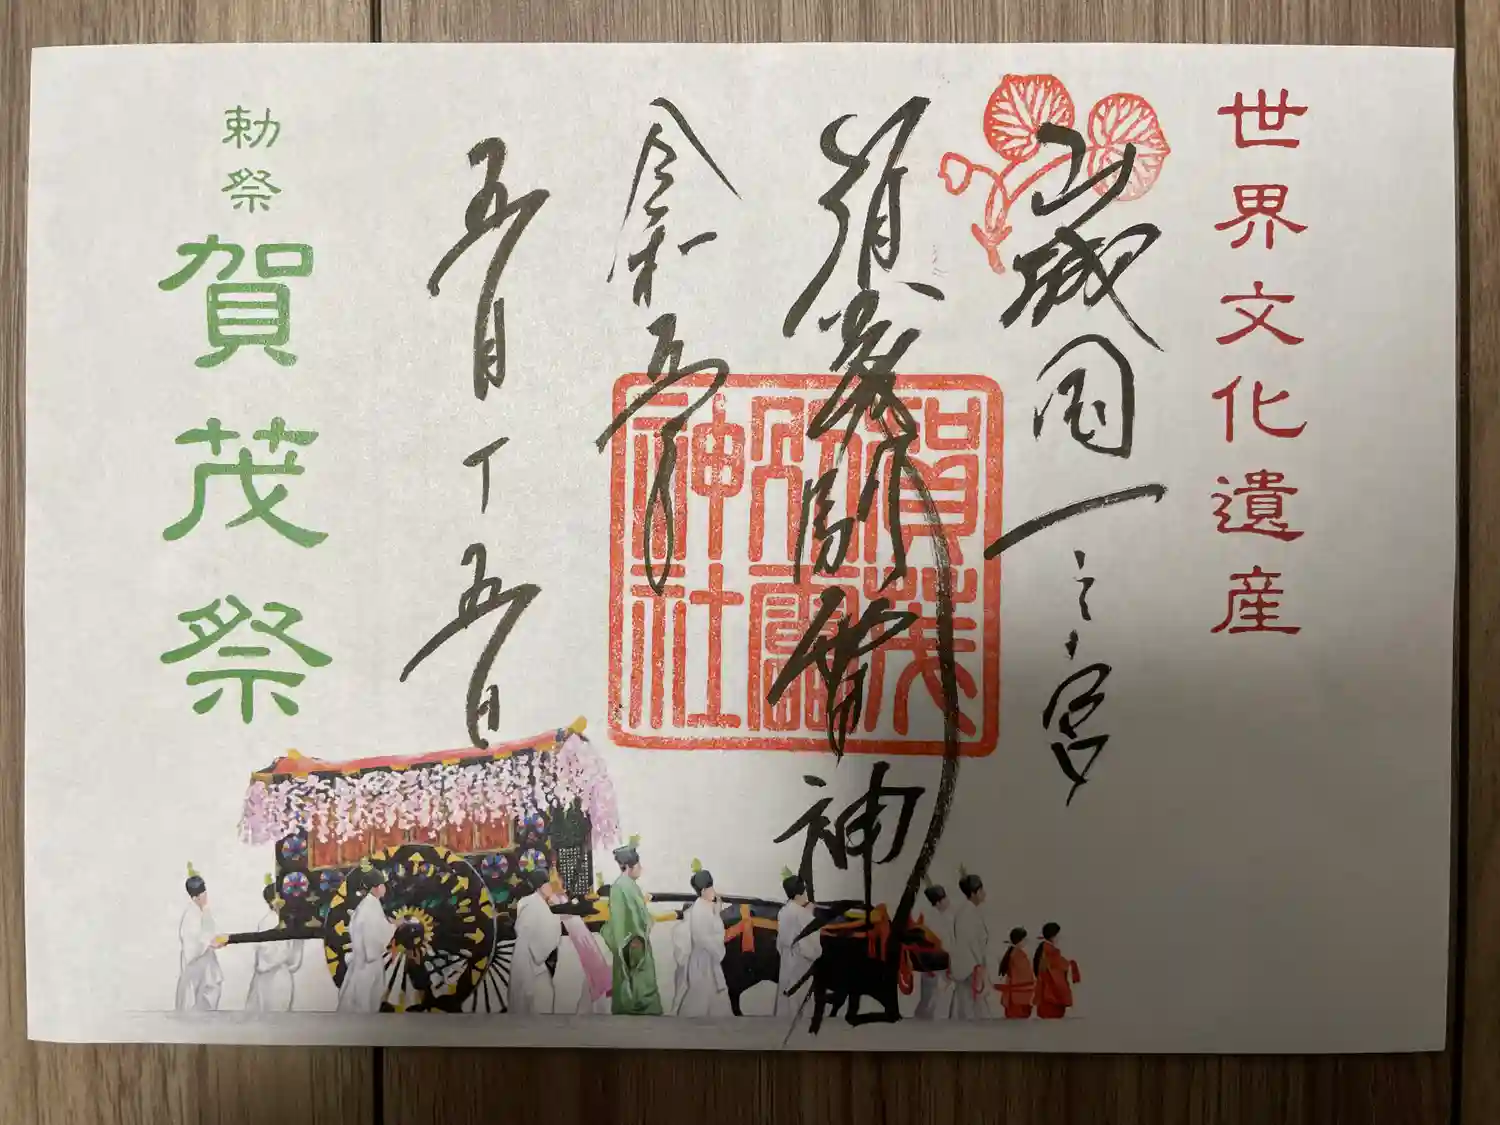 世界文化遺産
山城国一之宮
賀茂別雷神社
令和五年
五月十五日
勅祭
賀茂祭
賀茂
別雷
神社